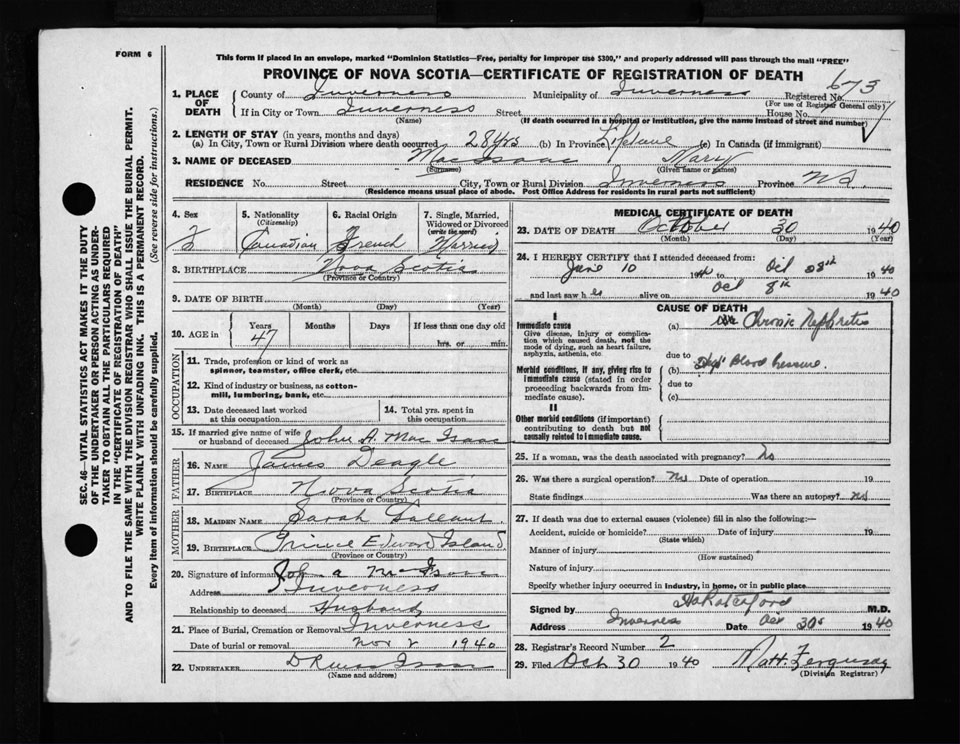 FORM 6
This form if placed in an envelope, marked "Dominion Statistics—Free, penalty for improper use $300," and properly addressed will pass through the mail "FREE"
PROVINCE OF NOVA SCOTIA—CERTIFICATE OF REGISTRATION OF DEATH
673
1. PLACE OF DEATH
County of Inverness Municipality of Inverness Registered No.
(For use of Registrar General only)
If in City or Town Inverness Street House No.
(Name) (If death occurred in a hospital or institution, give the name instead of street and number)
2. LENGTH OF STAY (in years, months and days)
(a) In City, Town or Rural Division where death occurred 28 Yrs (b) In Province Lifetime (c) In Canada (if immigrant)
3. NAME OF DECEASED MacIsaac Mary
(Surname) (Given name or names)
RESIDENCE No. Street City, Town or Rural Division Inverness Province N.S.
(Residence means usual place of abode. Post Office Address for residents in rural parts not sufficient)
4. Sex F
5. Nationality (Citizenship) Canadian
6. Racial Origin French
7. Single, Married, Widowed or Divorced (write the word) Married
8. BIRTHPLACE Nova Scotia
(Province or Country)
9. DATE OF BIRTH
(Month) (Day) (Year)
10. AGE in Years 47 Months Days If less than one day old
hrs. or min.
OCCUPATION
11. Trade, profession or kind of work as spinner, teamster, office clerk, etc.
12. Kind of industry or business, as cotton-mill, lumbering, bank, etc.
13. Date deceased last worked at this occupation
14. Total yrs. spent in this occupation
15. If married give name of wife or husband of deceased John A. Mac Isaac
FATHER
16. NAME James Deagle
17. BIRTHPLACE Nova Scotia
(Province or Country)
MOTHER
18. MAIDEN NAME Sarah Gallant
19. BIRTHPLACE Prince Edward Island
(Province or Country)
20. Signature of informant
Address Inverness
Relationship to deceased Husband
21. Place of Burial, Cremation or Removal Inverness
Date of burial or removal Nov 2 1940
22. UNDERTAKER
(Name and address)
MEDICAL CERTIFICATE OF DEATH
23. DATE OF DEATH October 30 1940
(Month) (Day) (Year)
24. I HEREBY CERTIFY that I attended deceased from:
June 10 19 to Oct 1940
and last saw her alive on Oct 8th 1940
CAUSE OF DEATH
I
Immediate cause
Give disease, injury or complication which caused death, not the mode of dying, such as heart failure, asphyxia, asthenia, etc.
Morbid conditions, if any, giving rise to immediate cause (stated in order proceeding backwards from immediate cause).
II
Other morbid conditions (if important) contributing to death but not causally related to immediate cause.
(a) Chronic Nephritis
due to
(b) Blood Pressure.
due to
(c)
25. If a woman, was the death associated with pregnancy? No
26. Was there a surgical operation? No Date of operation 19
State findings Was there an autopsy? No
27. If death was due to external causes (violence) fill in also the following:—
Accident, suicide or homicide? Date of injury 19
(State which)
Manner of injury
(How sustained)
Nature of injury
Specify whether injury occurred in industry, in home, or in public place
Signed by M.D.
Address Inverness Date Oct 30 1940
28. Registrar's Record Number 2
29. Filed Oct 30 1940 Matt. Ferguson
(Division Registrar)
SEC. 46—VITAL STATISTICS ACT MAKES IT THE DUTY
OF THE UNDERTAKER OR PERSON ACTING AS UNDER-
TAKER TO OBTAIN ALL THE PARTICULARS REQUIRED
IN THE "CERTIFICATE OF REGISTRATION OF DEATH"
AND TO FILE THE SAME WITH THE DIVISION REGISTRAR WHO SHALL ISSUE THE BURIAL PERMIT.
WRITE PLAINLY WITH UNFADING INK. THIS IS A PERMANENT RECORD.
Every item of information should be carefully supplied. (See reverse side for instructions.)